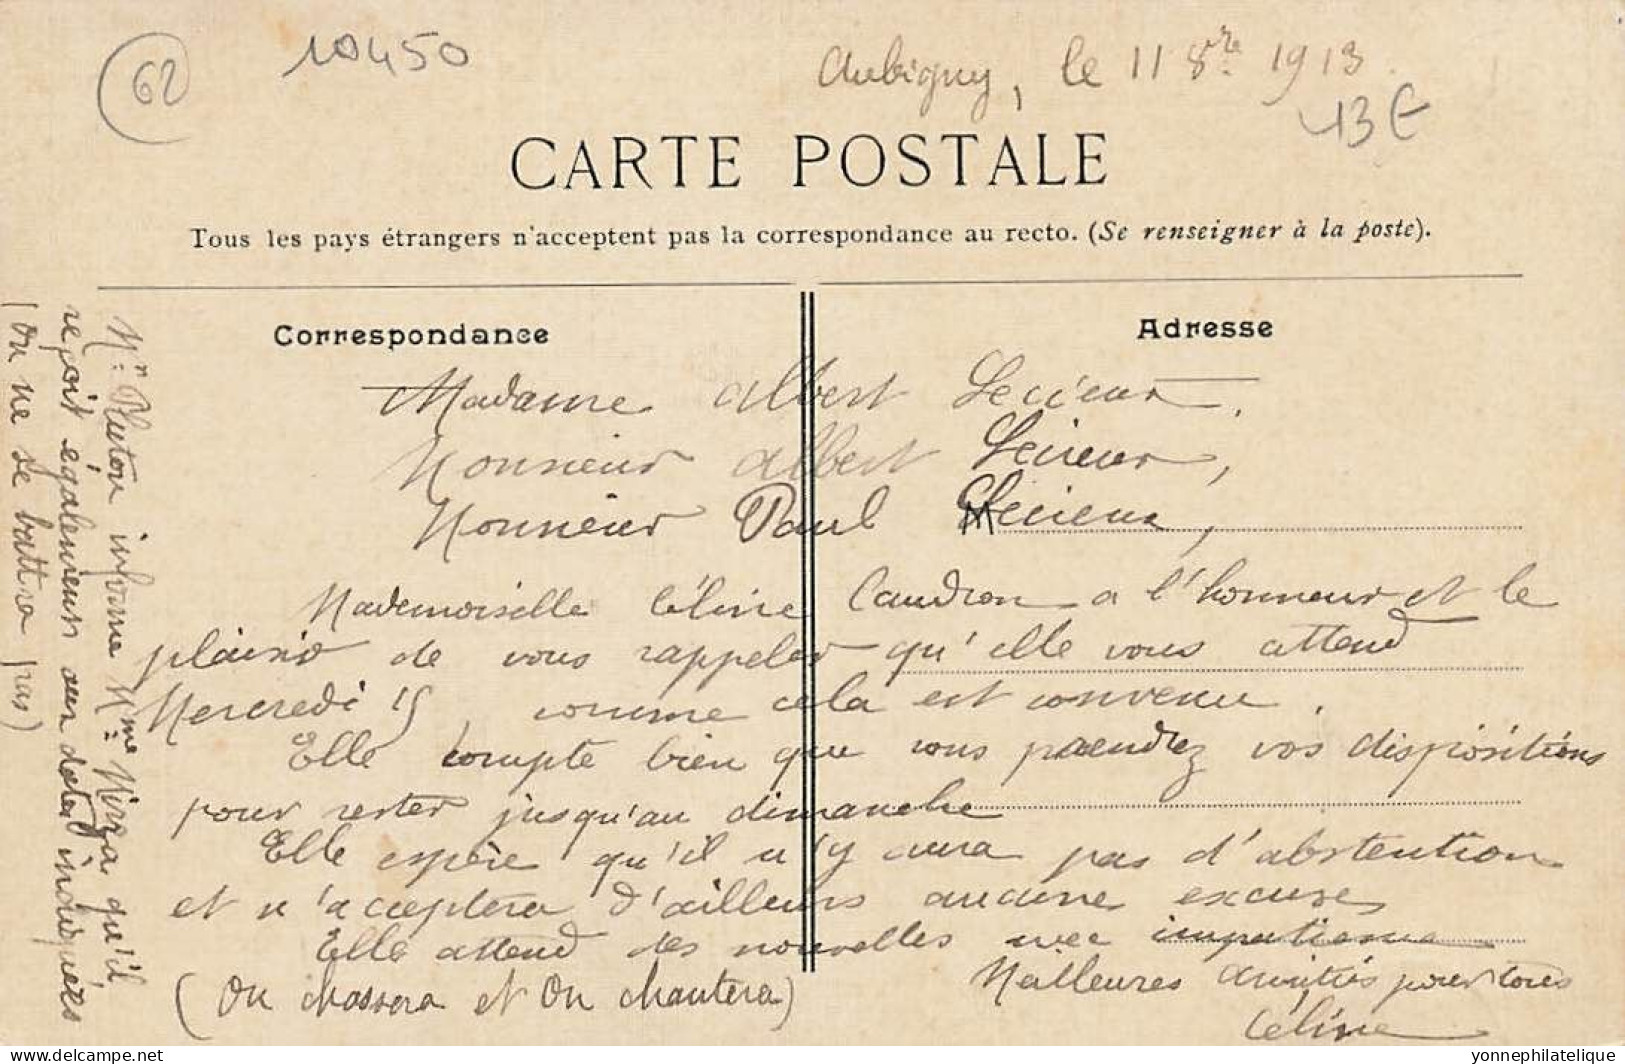 62
10450
Aubigny, le 11 8bre 1913
13€
CARTE POSTALE
Tous les pays étrangers n'acceptent pas la correspondance au recto. (Se renseigner à la poste).
Correspondance
Adresse
Madame Albert Lecieux,
Monsieur Albert Lecieux,
Monsieur Paul Lecieux,
Mademoiselle Céline Caudron a l'honneur et le
plaisir de vous rappeler qu'elle vous attend
Mercredi 15, comme cela est convenu.
Elle compte bien que vous prendrez vos dispositions
pour rester jusqu'au dimanche
Elle espère qu'il n'y aura pas d'abstention
et n'acceptera d'ailleurs aucune excuse
Elle attend des nouvelles avec impatience
(On chassera et On chantera)
Meilleures amitiés pour tous
Céline
Mr Pluton informe Mme Mirza qu'il
reçoit également aux dates indiquées
(On ne se battra pas)
62
yonnephilatelique